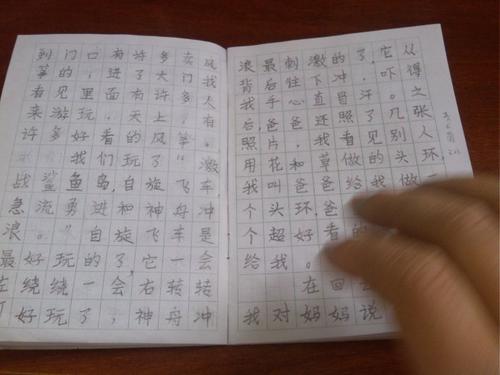 到门口有许多卖风
筝的，进了大门我
看见里面有许多人
来游玩，天上有
许多好看的风筝。
我们玩了“激
战鲨鱼岛，自旋飞车
急流勇进和神舟冲
浪。”自旋飞车是
最好玩的了，它一会
左绕绕一会，右转转
好玩了，神舟冲
浪最刺激的了，它从
背后往下冲，吓得
我手心直冒汗了。之
后，爸爸，还照几张
照片，我看见别人
用花和草做的头环，
我叫爸爸给我做一
个头环，爸
个超好看的
给我。
在回
我对妈妈说